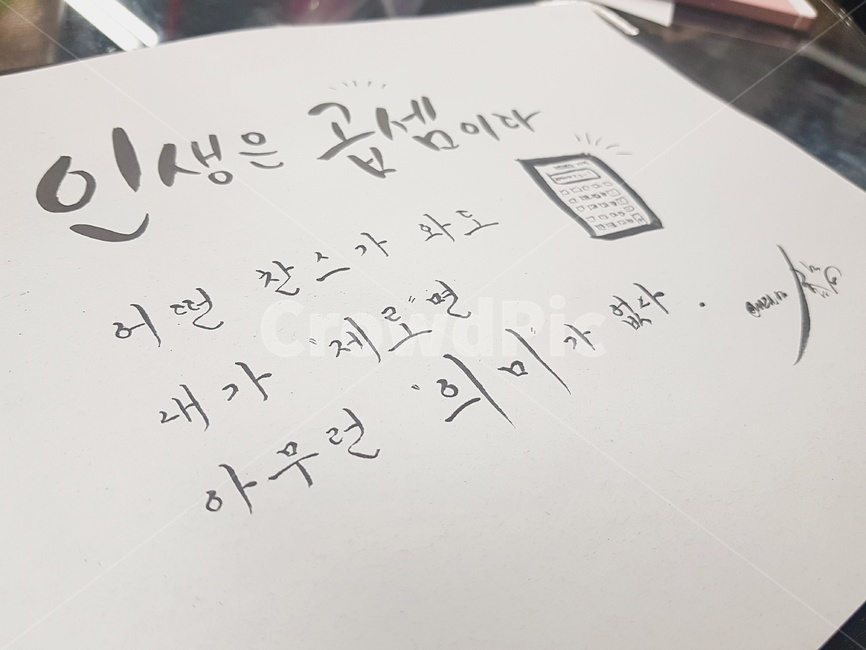 인생은 곱셈이다
어떤 찬스가 와도
내가 "제로"면
아무런 "의미"가 없다.
CrowdPic